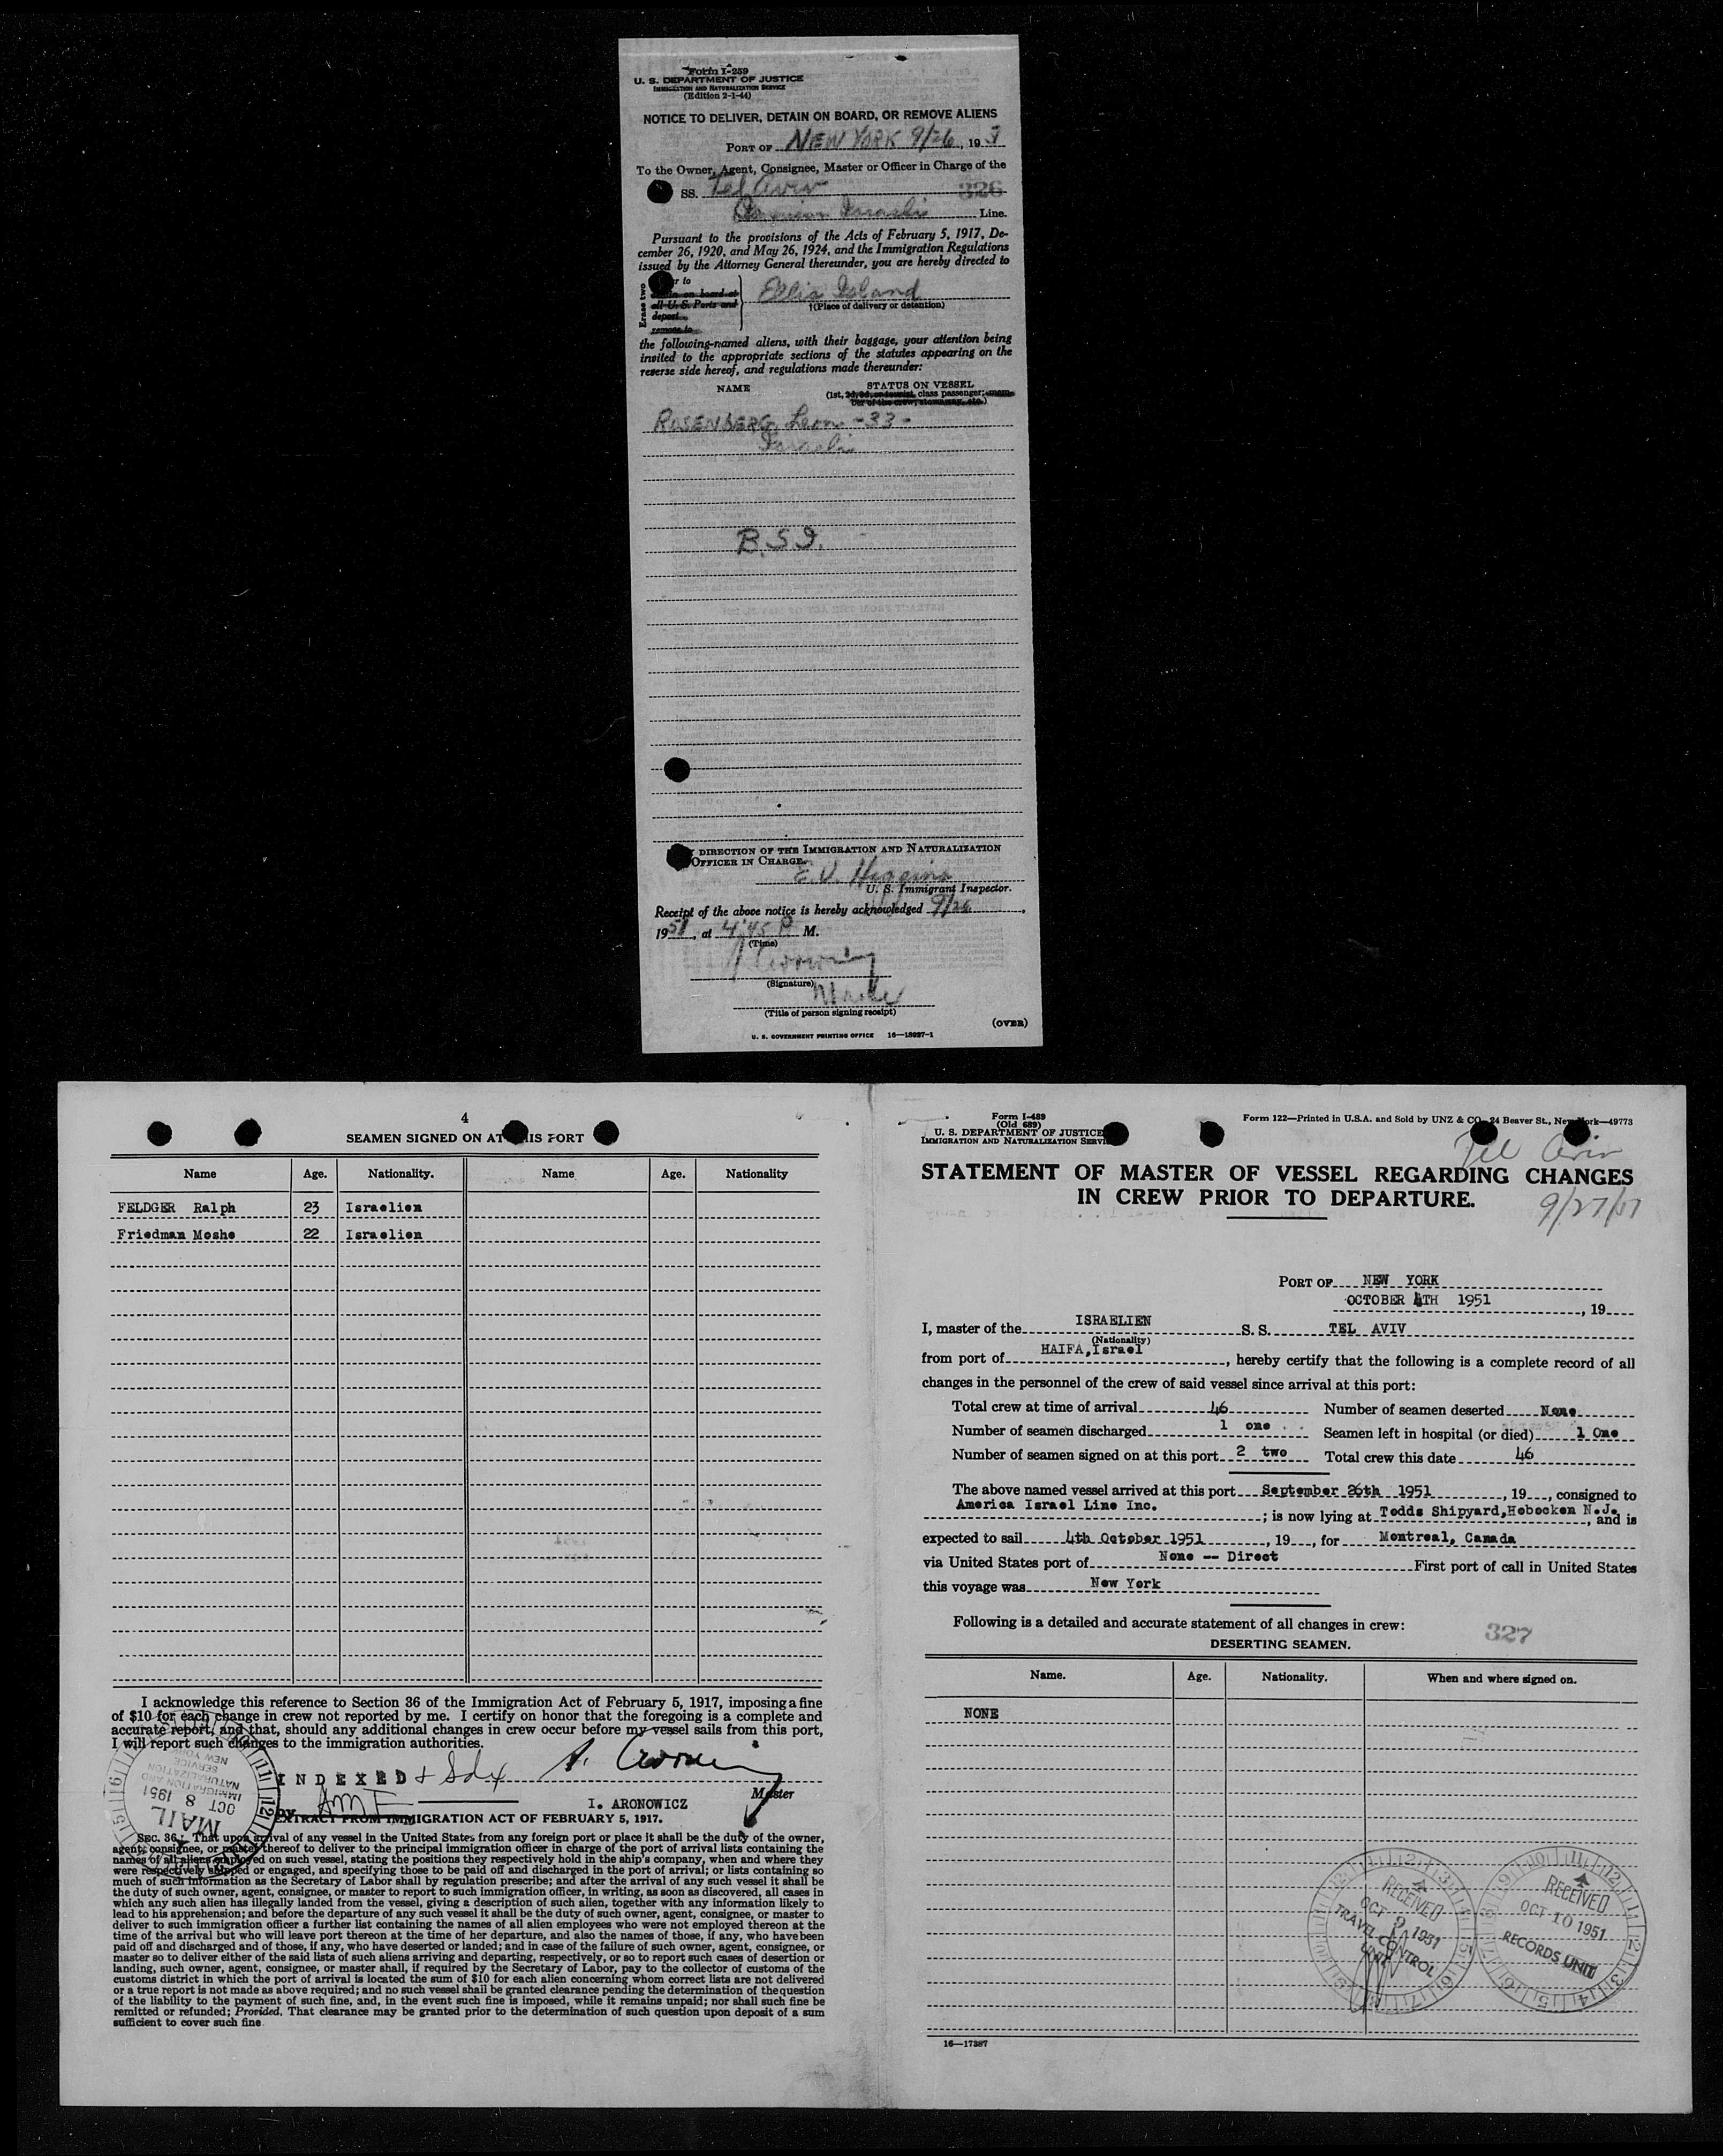 Form I-259
U. S. DEPARTMENT OF JUSTICE
IMMIGRATION AND NATURALIZATION SERVICE
(Edition 2-1-44)
NOTICE TO DELIVER, DETAIN ON BOARD, OR REMOVE ALIENS
PORT OF NEW YORK 9/26, 19
To the Owner, Agent, Consignee, Master or Officer in Charge of the
SS. Tel Aviv 326
Israeli Line.
Pursuant to the provisions of the Acts of February 5, 1917, De-
cember 26, 1920, and May 26, 1924, and the Immigration Regulations
issued by the Attorney General thereunder, you are hereby directed to
Erase two
r to
in on board at
all U. S. Ports and
deport
remove to
Ellis Island
†(Place of delivery or detention)
the following-named aliens, with their baggage, your attention being
invited to the appropriate sections of the statutes appearing on the
reverse side hereof, and regulations made thereunder:
NAME STATUS ON VESSEL
(1st, 2d, 3d, or tourist, class passenger; mem-
ber of the crew, stowaway, etc.)
ROSENBERG, Leon -33-
Israeli
B.S.I.
DIRECTION OF THE IMMIGRATION AND NATURALIZATION
OFFICER IN CHARGE.
E. V. Higgins
U. S. Immigrant Inspector.
Receipt of the above notice is hereby acknowledged 9/26,
1951, at 4:45 P. M.
(Time)
(Signature)
(Title of person signing receipt)
(OVER)
U. S. GOVERNMENT PRINTING OFFICE 16—18027-1
4
SEAMEN SIGNED ON AT THIS PORT
Name Age. Nationality. Name Age. Nationality
FELDGER Ralph 23 Israelien
Friedman Moshe 22 Israelien
I acknowledge this reference to Section 36 of the Immigration Act of February 5, 1917, imposing a fine
of $10 for each change in crew not reported by me. I certify on honor that the foregoing is a complete and
accurate report, and that, should any additional changes in crew occur before my vessel sails from this port,
I will report such changes to the immigration authorities.
INDEXED
Master
by AMF
I. ARONOWICZ
IMMIGRATION AND
NATURALIZATION
SERVICE
NEW YORK
OCT 8 1951
MAIL
EXTRACT FROM IMMIGRATION ACT OF FEBRUARY 5, 1917.
SEC. 36. That upon arrival of any vessel in the United States from any foreign port or place it shall be the duty of the owner,
agent, consignee, or master thereof to deliver to the principal immigration officer in charge of the port of arrival lists containing the
names of all aliens employed on such vessel, stating the positions they respectively hold in the ship's company, when and where they
were respectively shipped or engaged, and specifying those to be paid off and discharged in the port of arrival; or lists containing so
much of such information as the Secretary of Labor shall by regulation prescribe; and after the arrival of any such vessel it shall be
the duty of such owner, agent, consignee, or master to report to such immigration officer, in writing, as soon as discovered, all cases in
which any such alien has illegally landed from the vessel, giving a description of such alien, together with any information likely to
lead to his apprehension; and before the departure of any such vessel it shall be the duty of such owner, agent, consignee, or master to
deliver to such immigration officer a further list containing the names of all alien employees who were not employed thereon at the
time of the arrival but who will leave port thereon at the time of her departure, and also the names of those, if any, who have been
paid off and discharged and of those, if any, who have deserted or landed; and in case of the failure of such owner, agent, consignee, or
master so to deliver either of the said lists of such aliens arriving and departing, respectively, or so to report such cases of desertion or
landing, such owner, agent, consignee, or master shall, if required by the Secretary of Labor, pay to the collector of customs of the
customs district in which the port of arrival is located the sum of $10 for each alien concerning whom correct lists are not delivered
or a true report is not made as above required; and no such vessel shall be granted clearance pending the determination of the question
of the liability to the payment of such fine, and, in the event such fine is imposed, while it remains unpaid; nor shall such fine be
remitted or refunded; Provided, That clearance may be granted prior to the determination of such question upon deposit of a sum
sufficient to cover such fine.
Form I-489
(Old 689)
U. S. DEPARTMENT OF JUSTICE
IMMIGRATION AND NATURALIZATION SERVICE
Form 122—Printed in U.S.A. and Sold by UNZ & CO. 24 Beaver St., New York—49773
Tel Aviv
STATEMENT OF MASTER OF VESSEL REGARDING CHANGES
IN CREW PRIOR TO DEPARTURE.
9/27/51
PORT OF NEW YORK
OCTOBER 4TH 1951, 19
I, master of the ISRAELIEN S. S. TEL AVIV
(Nationality)
from port of HAIFA, Israel, hereby certify that the following is a complete record of all
changes in the personnel of the crew of said vessel since arrival at this port:
Total crew at time of arrival 46 Number of seamen deserted None
Number of seamen discharged 1 one Seamen left in hospital (or died) 1 One
Number of seamen signed on at this port 2 two Total crew this date 46
The above named vessel arrived at this port September 26th 1951, 19, consigned to
America Israel Line Inc.; is now lying at Todds Shipyard, Hobocken N.J., and is
expected to sail 4th October 1951, 19, for Montreal, Canada
via United States port of None -- Direct First port of call in United States
this voyage was New York
Following is a detailed and accurate statement of all changes in crew:
327
DESERTING SEAMEN.
Name. Age. Nationality. When and where signed on.
NONE
RECEIVED
OCT 9 1951
TRAVEL CONTROL
UNIT
RECEIVED
OCT 10 1951
RECORDS UNIT
16—17387